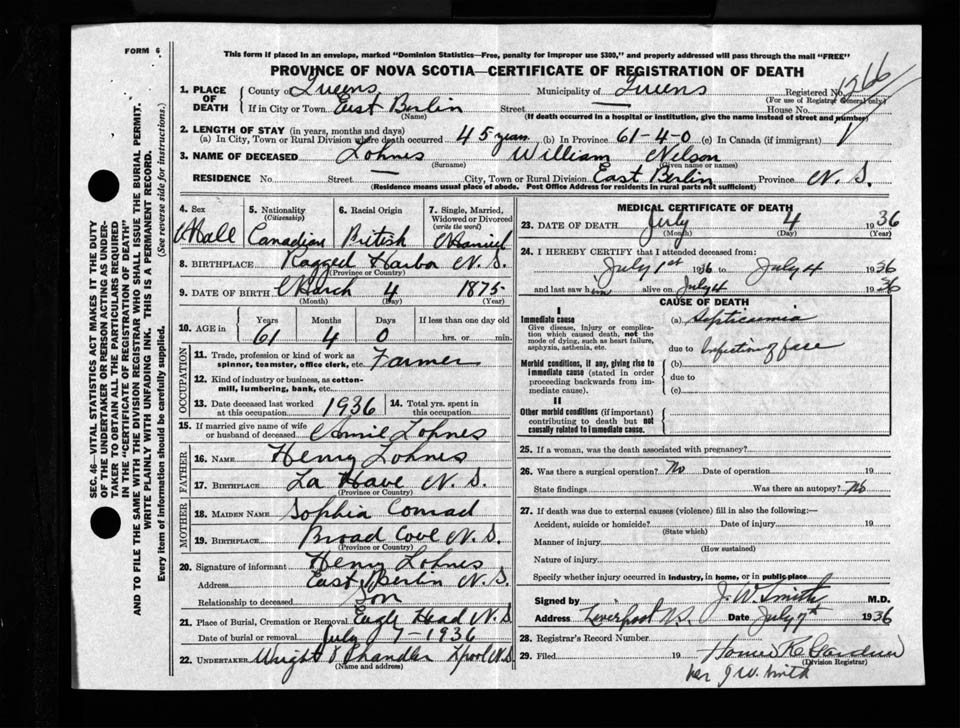 FORM 6
This form if placed in an envelope, marked "Dominion Statistics—Free, penalty for improper use $300," and properly addressed will pass through the mail "FREE"
PROVINCE OF NOVA SCOTIA—CERTIFICATE OF REGISTRATION OF DEATH
1. PLACE OF DEATH
County of Queens Municipality of Queens Registered No.
(For use of Registrar General only)
If in City or Town East Berlin Street — House No.
(Name) (If death occurred in a hospital or institution, give the name instead of street and number)
2. LENGTH OF STAY (in years, months and days)
(a) In City, Town or Rural Division where death occurred 45 years (b) In Province 61-4-0 (c) In Canada (if immigrant)
3. NAME OF DECEASED Lohnes William Nelson
(Surname) (Given name or names)
RESIDENCE No. Street — City, Town or Rural Division East Berlin Province N.S.
(Residence means usual place of abode. Post Office Address for residents in rural parts not sufficient)
4. Sex Male
5. Nationality (Citizenship) Canadian
6. Racial Origin British
7. Single, Married, Widowed or Divorced (write the word) Married
8. BIRTHPLACE Ragged Harbor N.S.
(Province or Country)
9. DATE OF BIRTH March 4 1875
(Month) (Day) (Year)
10. AGE in Years 61 Months 4 Days 0 If less than one day old hrs. or min.
OCCUPATION
11. Trade, profession or kind of work as spinner, teamster, office clerk, etc. Farmer
12. Kind of industry or business, as cotton-mill, lumbering, bank, etc.
13. Date deceased last worked at this occupation 1936
14. Total yrs. spent in this occupation
15. If married give name of wife or husband of deceased Lohnes
FATHER
16. NAME Henry Lohnes
17. BIRTHPLACE La Have N.S.
(Province or Country)
MOTHER
18. MAIDEN NAME Sophia Conrad
19. BIRTHPLACE Broad Cove N.S.
(Province or Country)
20. Signature of informant Henry Lohnes
Address East Berlin N.S.
Relationship to deceased Son
21. Place of Burial, Cremation or Removal Eagle Head N.S.
Date of burial or removal July 7-1936
22. UNDERTAKER Wright & Chandler Lpool N.S.
(Name and address)
MEDICAL CERTIFICATE OF DEATH
23. DATE OF DEATH July 4 1936
(Month) (Day) (Year)
24. I HEREBY CERTIFY that I attended deceased from:
July 1st 1936 to July 4 1936
and last saw him alive on July 4 1936
CAUSE OF DEATH
I
Immediate cause
Give disease, injury or complication which caused death, not the mode of dying, such as heart failure, asphyxia, asthenia, etc.
(a) Septicaemia
due to Infection of face
Morbid conditions, if any, giving rise to immediate cause (stated in order proceeding backwards from immediate cause).
(b)
due to
(c)
II
Other morbid conditions (if important) contributing to death but not causally related to immediate cause.
25. If a woman, was the death associated with pregnancy?
26. Was there a surgical operation? No Date of operation 19
State findings Was there an autopsy? No
27. If death was due to external causes (violence) fill in also the following:—
Accident, suicide or homicide? Date of injury 19
(State which)
Manner of injury
(How sustained)
Nature of injury
Specify whether injury occurred in industry, in home, or in public place
Signed by J. W. Smith M.D.
Address Liverpool N.S. Date July 7th 1936
28. Registrar's Record Number
29. Filed 19 Homer R. Gardner
(Division Registrar)
per J W. Smith
SEC. 46—VITAL STATISTICS ACT MAKES IT THE DUTY OF THE UNDERTAKER OR PERSON ACTING AS UNDERTAKER TO OBTAIN ALL THE PARTICULARS REQUIRED IN THE "CERTIFICATE OF REGISTRATION OF DEATH" AND TO FILE THE SAME WITH THE DIVISION REGISTRAR WHO SHALL ISSUE THE BURIAL PERMIT.
WRITE PLAINLY WITH UNFADING INK. THIS IS A PERMANENT RECORD.
Every item of information should be carefully supplied. (See reverse side for instructions.)